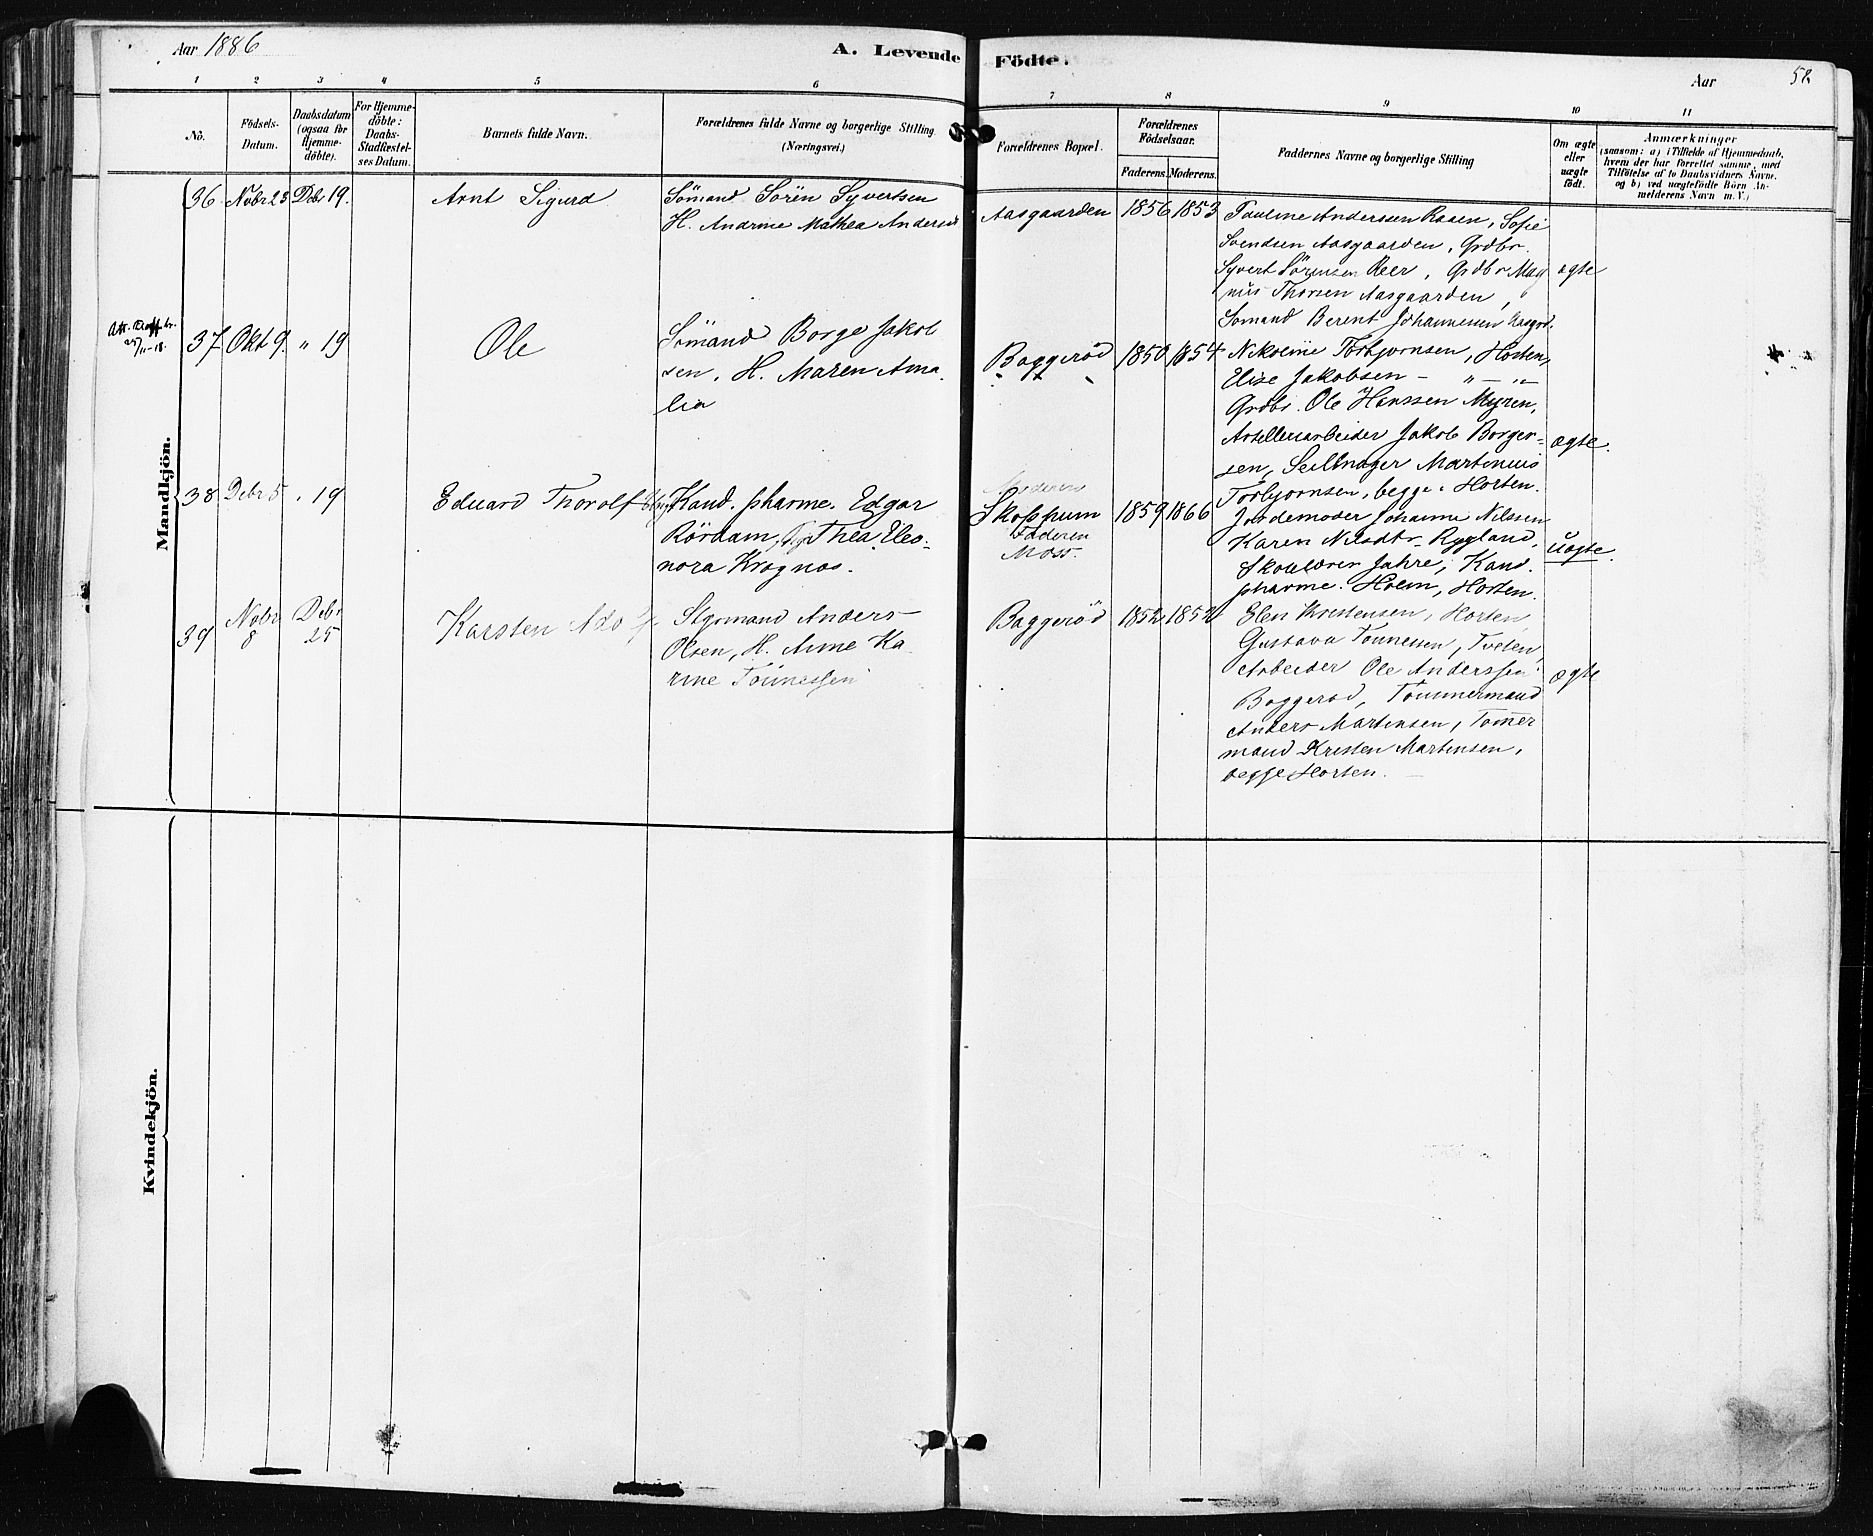 Aar 1886
A. Levende Födte.
Aar
52
1 2 3 4 5 6 7 8 9 10 11
Nö.
Födsels-
Datum.
Daabsdatum
(ogsaa for
Hjemme-
döbte).
For Hjemme-
döbte:
Daabs-
Stadfæstel-
ses Datum.
Barnets fulde Navn.
Forældrenes fulde Navne og borgerlige Stilling.
(Næringsvei.)
Forældrenes Bopæl.
Forældrenes
Födselsaar.
Faderens. Moderens.
Faddernes Navne og borgerlige Stilling
Om ægte
eller
uægte
födt.
Anmærkninger
(saasom: a) i Tilfælde af Hjemmedaab,
hvem der har forrettet samme, med
Tilföielse af to Daabsvidners Navne.
og b) ved uægtefödte Börn An-
melderens Navn m. V.)
Mandkjön.
36. Novbr 23 Debr 19.
Arnt Sigurd
Sömand Sören Syvertsen
H. Andrine Mathea Anderssen
Aasgaarden
1856 1853
Pauline Anderssen Raaen, Sofie
Svendsen Aasgaarden, Grdbr.
Syvert Sörensen Reer, Grdbr Mag
nus Thorsen Aasgaarden,
Sömand Berent Johannessen Aasgrd.
ægte
37 Okt 9. " 19
Ole
Sömand Borge Jakob
sen, H. Maren Ama
lia
Baggeröd
1850 1854
Nikoline Torbjornsen, Horten,
Elise Jakobsen – " – "
Grdbr. Ole Hanssen Myren,
Artilleriarbeider Jakob Borger-
sen, Seilmager Martinius
Torbjornsen, begge Horten.
ægte.
38 Debr 5 " 19
Eduard Thorolf
Kand. pharme. Edgar
Rördam, Thea Eleo-
nora Krognos.
Moderens
Skoppum
Faderen
Moss.
1859 1866
Jordemoder Johanne Nilssen
Karen Nilsdtr Rygland,
Skolelærer Jahre, Kand.
pharme. Holm, Horten.
uægte.
39 Novbr 8 Debr 25
Karsten Adolf
Styrmand Anders
Olsen, H. Anne Ka
rine Tönnessen
Baggeröd
1852 1852
Elen Kristensen, Horten,
Gustava Tonnessen, Tveten
Arbeider Ole Anderssen
Baggeröd, Tömmermand
Anders Martinsen, Tömmer
mand Kristen Martinsen,
begge Horten.
ægte
Kvindekjön.